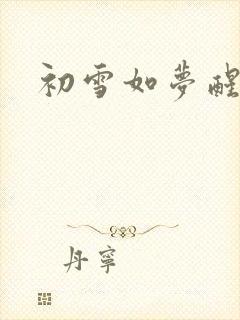 初雪如夢醒
丹寧